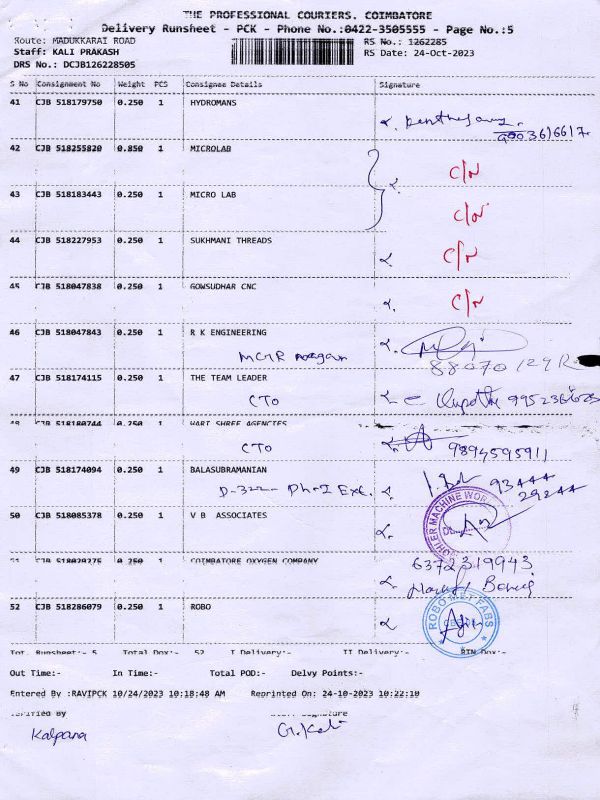 THE PROFESSIONAL COURIERS. COIMBATORE
Delivery Runsheet - PCK - Phone No.:0422-3505555 - Page No.:5
Route: MADUKKARAI ROAD
RS No.: 1262285
Staff: KALI PRAKASH
RS Date: 24-Oct-2023
DRS No.: DCJB126228505
S No Consignment No Weight PCS Consignee Details Signature
41 CJB 518179750 0.250 1 HYDROMANS
9003616617
42 CJB 518255820 0.850 1 MICROLAB
C/N
43 CJB 518183443 0.250 1 MICRO LAB
C/N
44 CJB 518227953 0.250 1 SUKHMANI THREADS
C/N
45 CJB 518047838 0.250 1 GOWSUDHAR CNC
C/N
46 CJB 518047843 0.250 1 R K ENGINEERING
MGR nagar
88070
47 CJB 518174115 0.250 1 THE TEAM LEADER
CTO
48 CJB 518180744 0.250 1 HARI SHREE AGENCIES
CTO 9894595911
49 CJB 518174094 0.250 1 BALASUBRAMANIAN
93444
29244
50 CJB 518085378 0.250 1 V B ASSOCIATES
MACHINE WOR
51 0.250 1 COIMBATORE OXYGEN COMPANY
6372319943
52 CJB 518286079 0.250 1 ROBO
ROBO MET FABS
Tot. Runsheet:- 5 Total Dox:- 52 I Delivery:- II Delivery:- RTN Dox:-
Out Time:- In Time:- Total POD:- Delvy Points:-
Entered By :RAVIPCK 10/24/2023 10:18:48 AM Reprinted On: 24-10-2023 10:22:10
Verified By Staff Signature
Kalpana